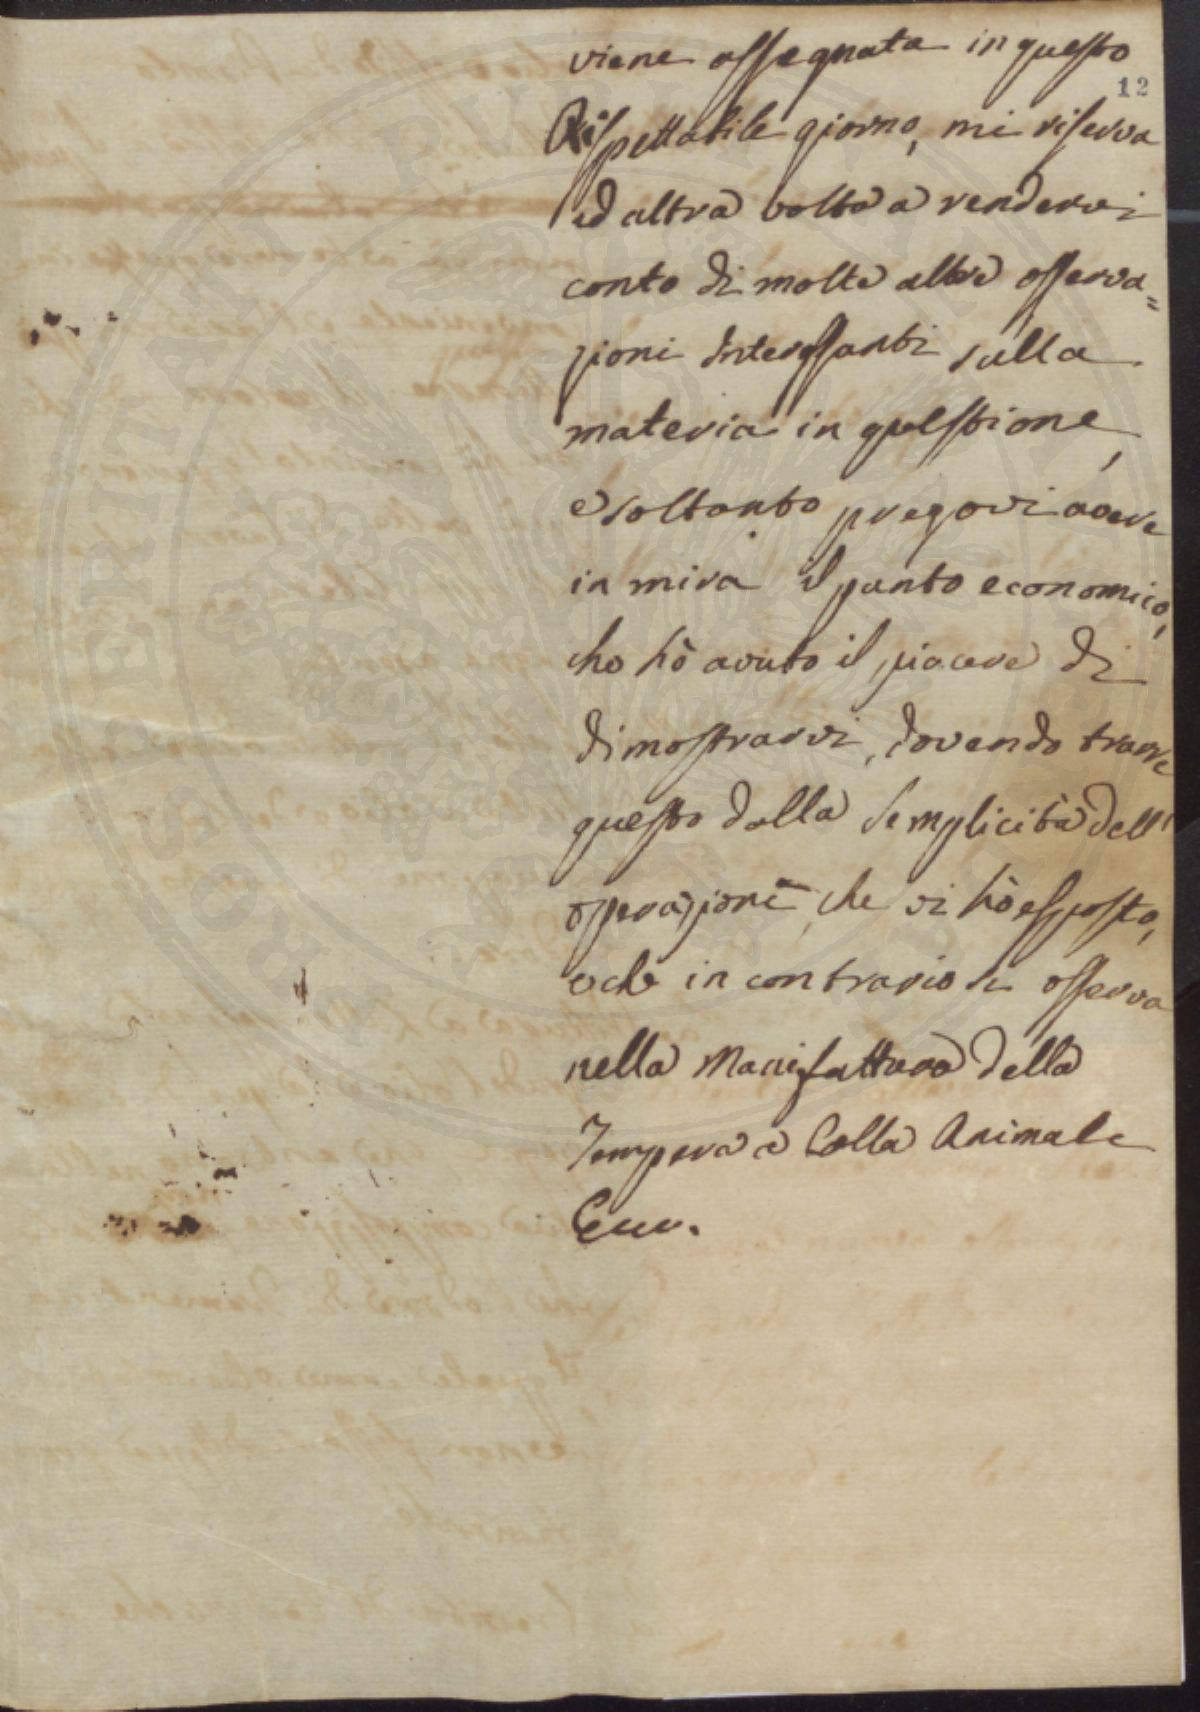 viene assegnata in questo
12
Rispettabile giorno, mi riserva
ad altra volta a rendervi
conto di molte altre osserva=
zioni Interessanti sulla
materia in questione,
e soltanto pregovi avere
in mira il punto economico,
che hò avuto il piacere di
dimostrarvi, dovendo trarre
questo dalla Semplicità dell'
operazione, che vi hò esposto,
e che in contrario si osserva
nella Manifattura della
Tempera a Colla Animale